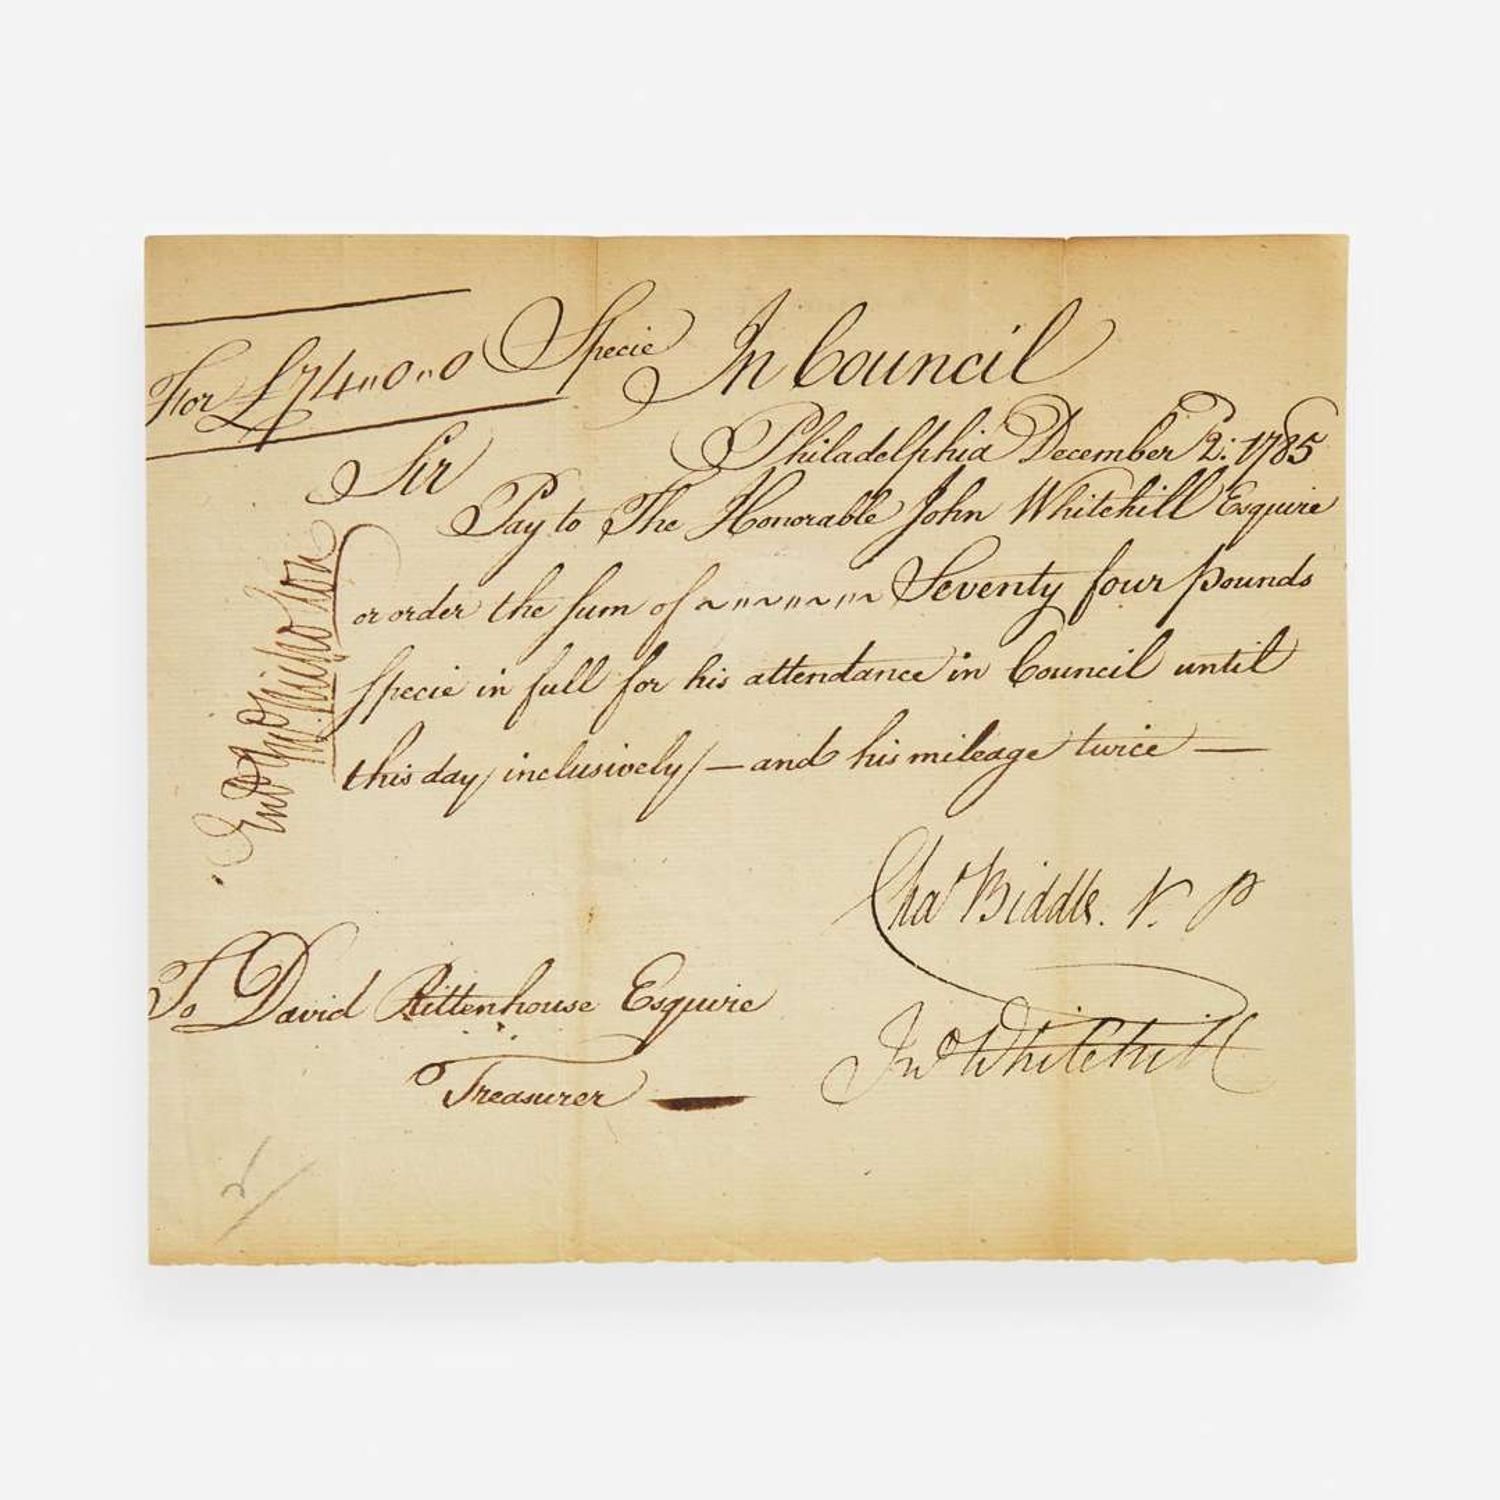 For £74"0"0 Specie
In Council
Philadelphia December 2: 1785
Sir
Pay to The Honorable John Whitehill Esquire
or order the sum of ~"~"~"~ Seventy four pounds
specie in full for his attendance in Council until
this day/inclusively/— and his mileage twice —
Chas Biddle. V. P
To David Rittenhouse Esquire
Treasurer —
Jno Whitehill
Entd Jno Nicholson